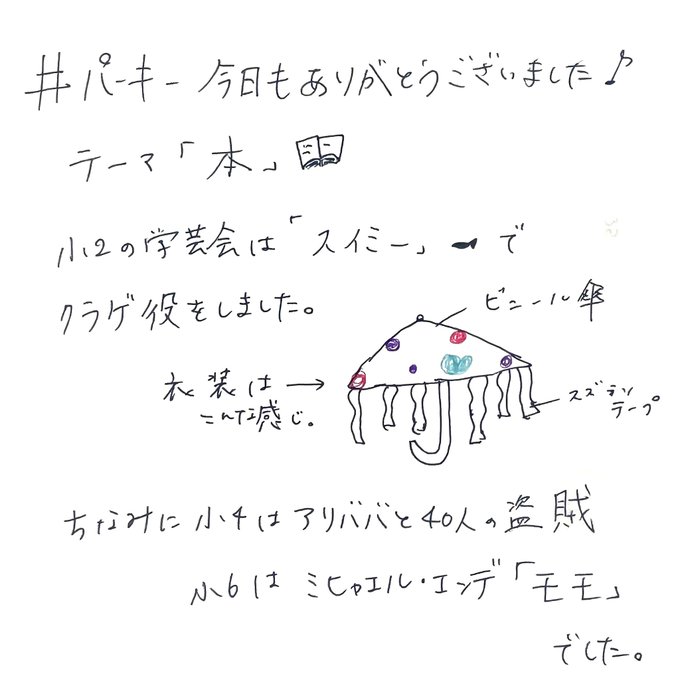 #パーキー 今日もありがとうございました♪
テーマ「本」
小2の学芸会は「スイミー」で
クラゲ役をしました。
ビニール傘
衣装は→
こんな感じ。
スズラン
テープ
ちなみに小4はアリババと40人の盗賊
小6はミヒャエル・エンデ「モモ」
でした。